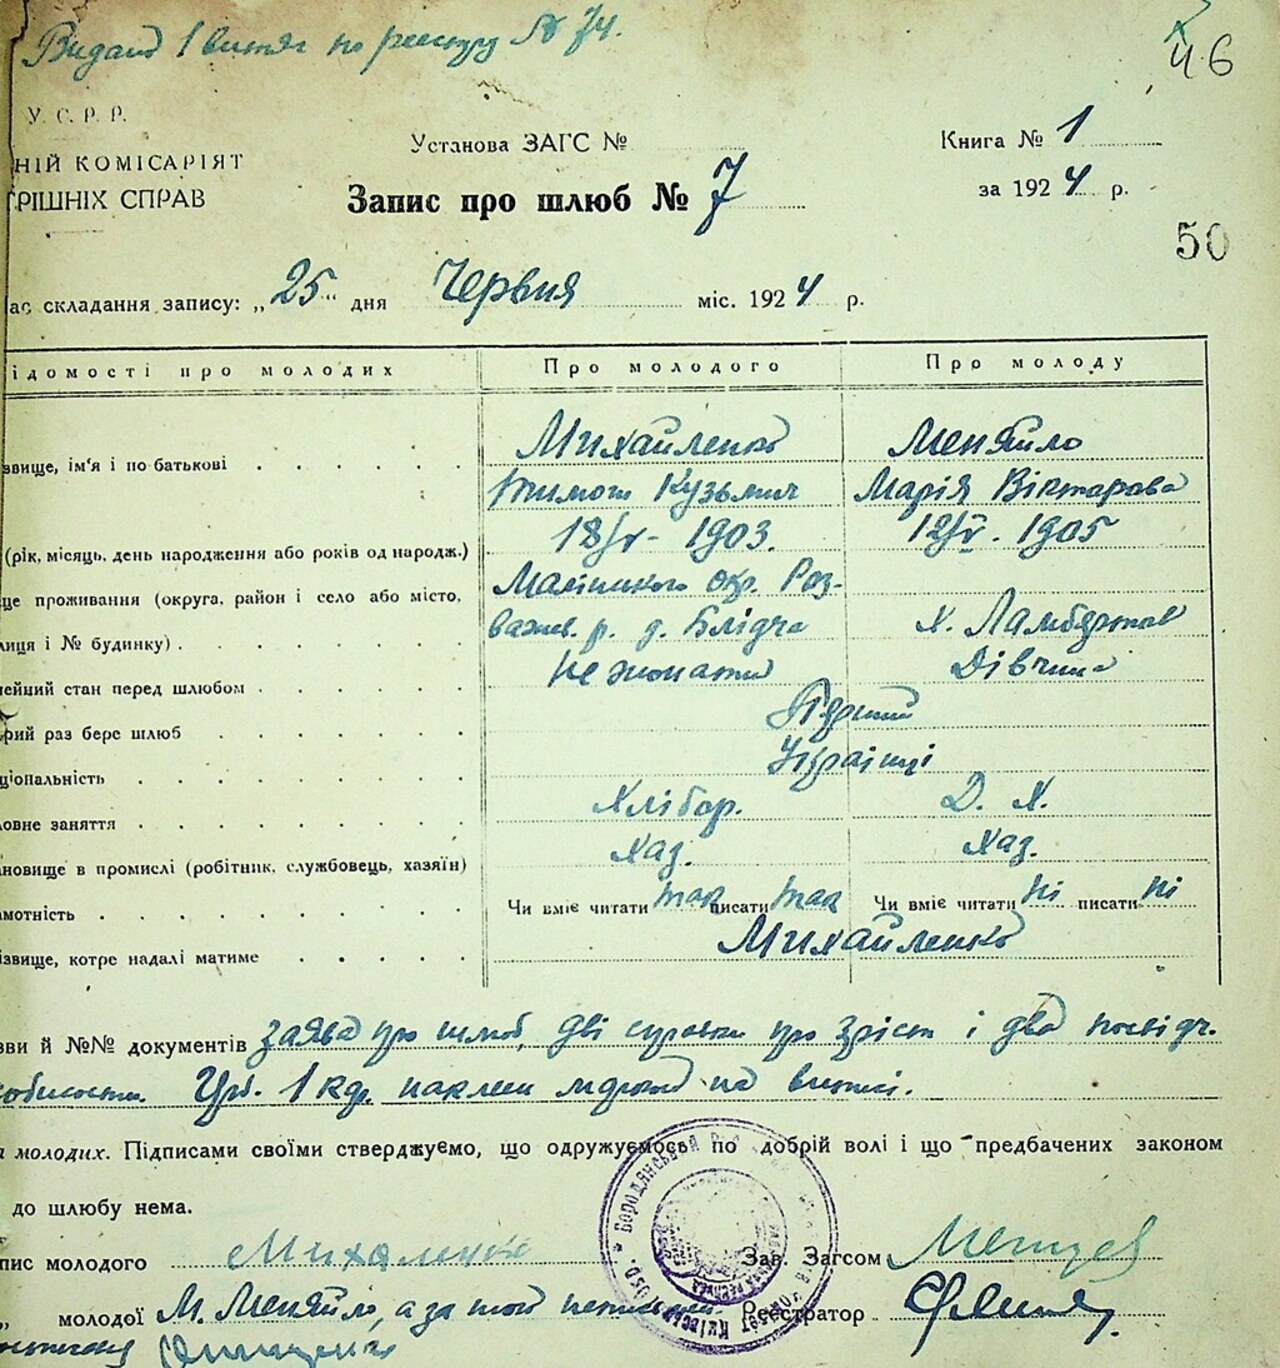 Видано 1 витяг по реєстру № 74.
46
У. С. Р. Р.
НІЙ КОМІСАРІЯТ
РІШНІХ СПРАВ
Установа ЗАГС №
Книга № 1
за 1924 р.
Запис про шлюб № 7
50
ас складання запису: „25“ дня Червня міс. 1924 р.
ідомості про молодих Про молодого Про молоду
звище, ім'я і по батькові Михайленко Меняйло
Тимош Кузьмич Марія Вікторова
(рік, місяць, день народження або років од народж.) 18/V - 1903. 12/V. - 1905
це проживання (округа, район і село або місто, Малинського окр. Роз-
лиця і № будинку) важев. р. д. Блідча Х. Ламбертов
ейний стан перед шлюбом Не жонатий Дівчина
рий раз бере шлюб Перший
ціональність Українці
овне заняття Хлібор. Д. Х.
новище в промислі (робітник, службовець, хазяїн) Хаз. Хаз.
мотність Чи вміє читати так писати так Чи вміє читати ні писати ні
ізвище, котре надалі матиме Михайленко
зви й №№ документів Заява про шлюб, дві справки про зріст і два посвідч.
1 на витисі.
молодих. Підписами своїми стверджуємо, що одружуємось по добрій волі і що предбачених законом
до шлюбу нема.
пис молодого Михаленко Зав. Загсом
„ молодої М. Меняйло, а за неї Реєстратор